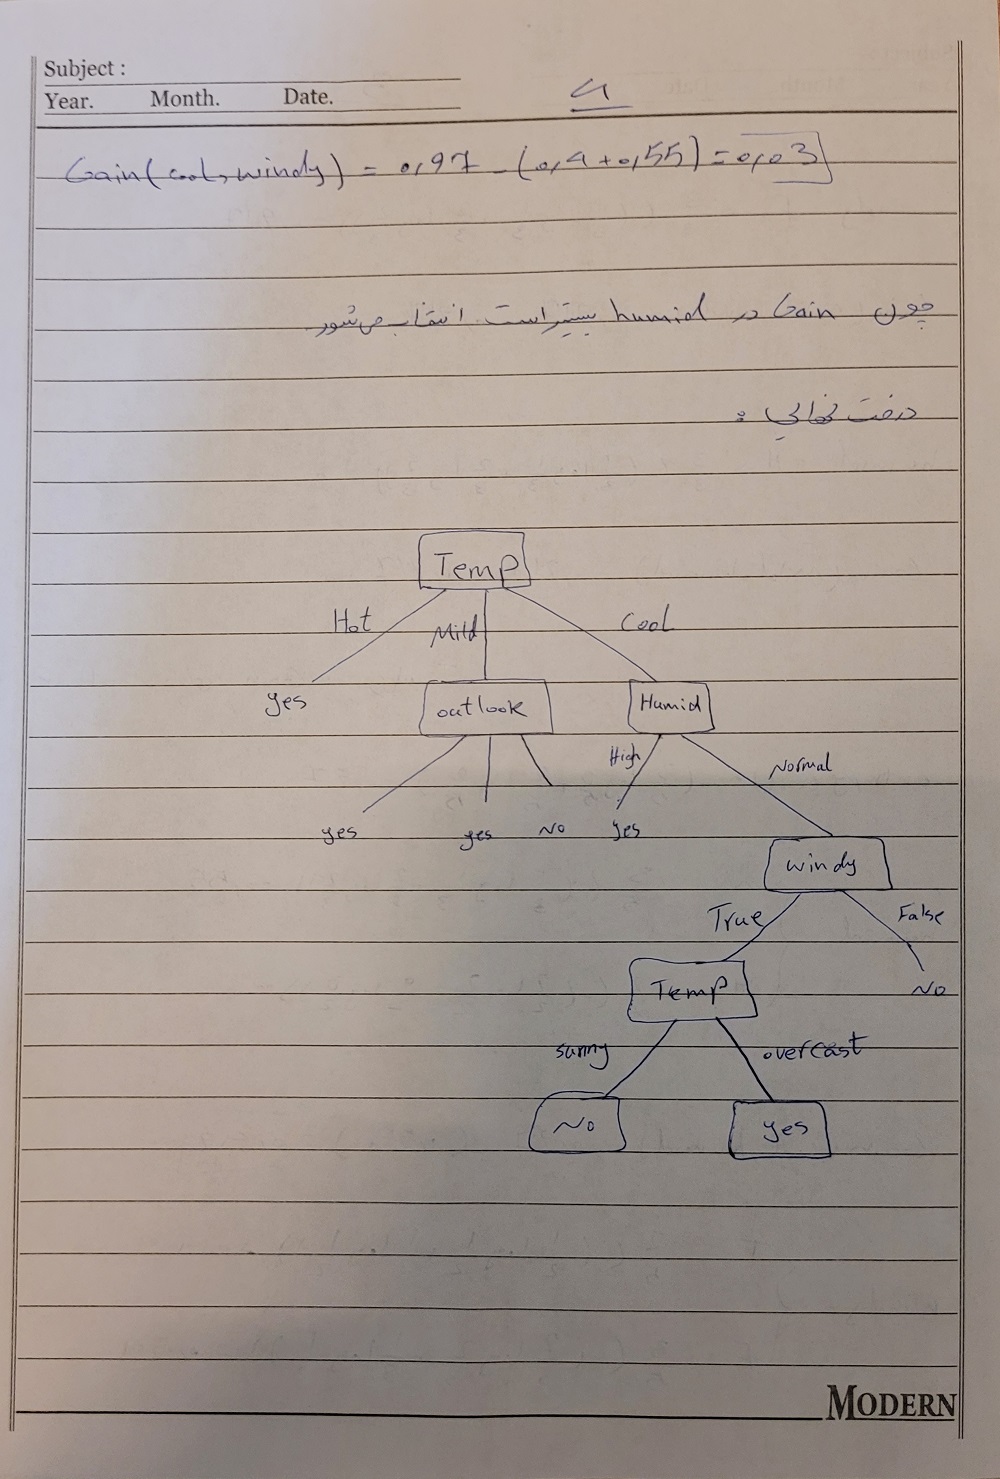 Subject :
Year. Month. Date.
Gain(cool, windy) = 0,97 - (0,4+0,55) = 0,03
چون Gain در humid بیشتر است انتخاب می‌شود
درخت نهایی :
Temp
Hot Mild Cool
yes outlook Humid
High Normal
yes yes No yes
windy
True False
Temp No
sunny overcast
No yes
MODERN